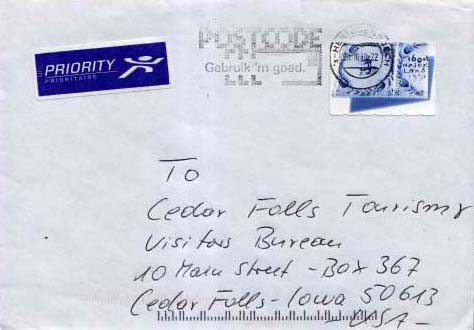 PRIORITY
PRIORITAIRE
POSTCODE
Gebruik 'm goed.
To
Cedar Falls Tourism
Visitors Bureau
10 Main Street - Box 367
Cedar Falls - Iowa 50613
- USA -